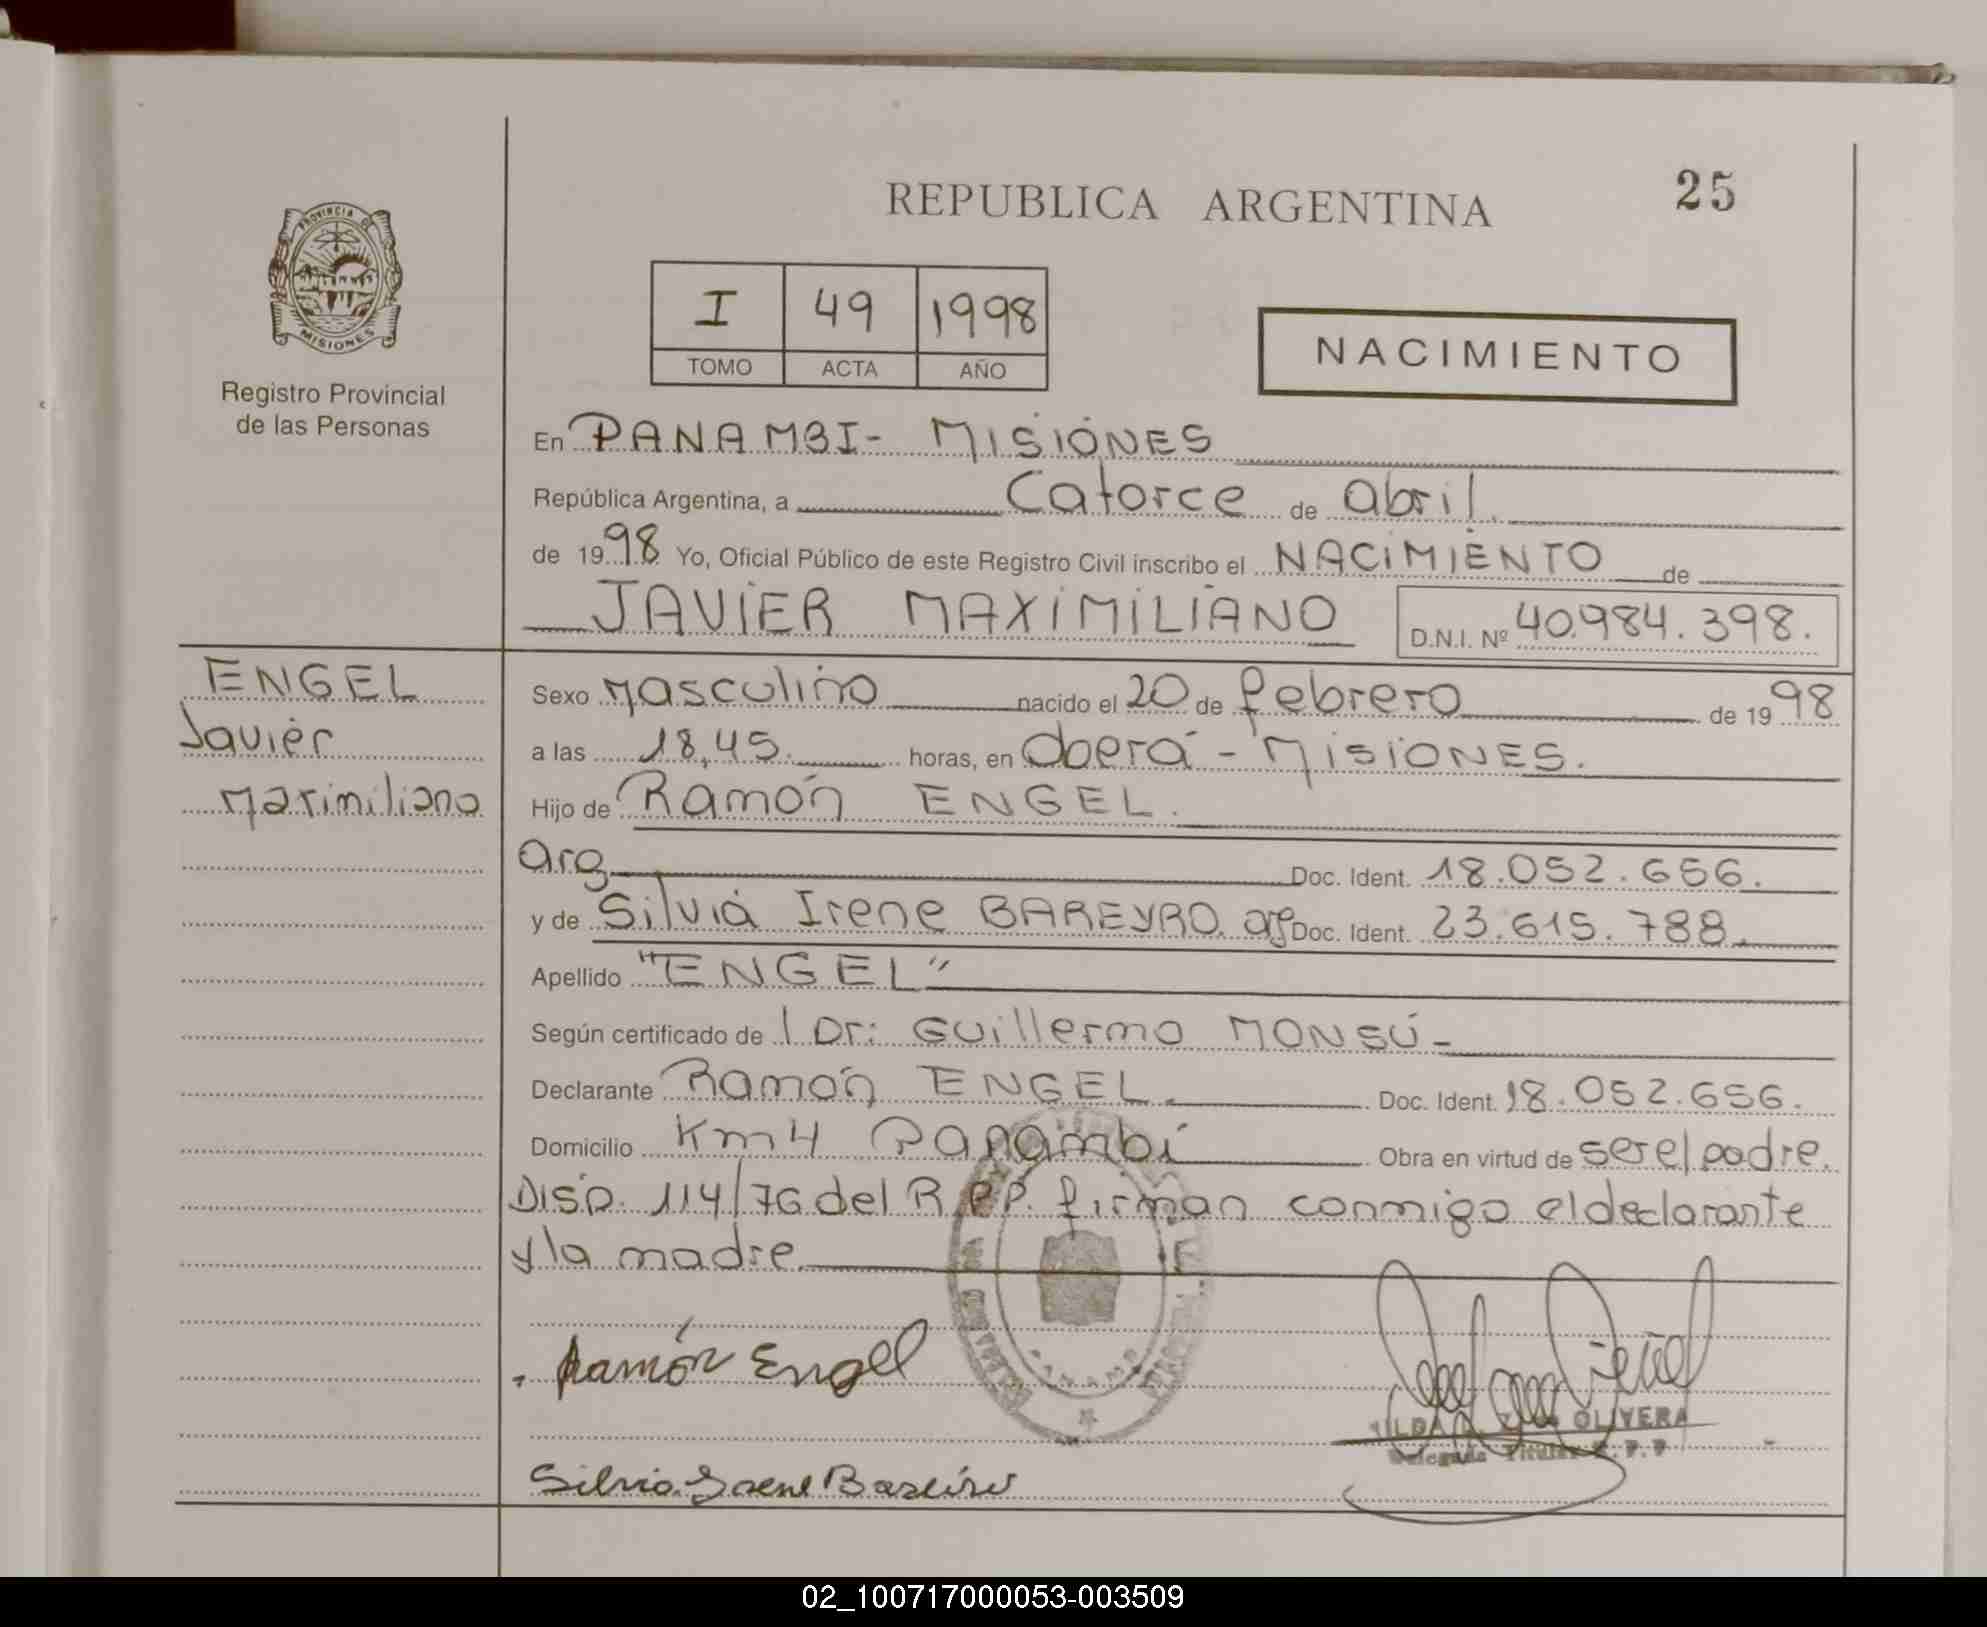 REPUBLICA ARGENTINA
25
PROVINCIA DE
MISIONES
Registro Provincial
de las Personas
I 49 1998
TOMO ACTA AÑO
NACIMIENTO
En PANAMBI- MISIONES
República Argentina, a Catorce de abril.
de 1998 Yo, Oficial Público de este Registro Civil inscribo el NACIMIENTO de
JAVIER MAXIMILIANO D.N.I. Nº 40.984.398.
ENGEL
Javier
Maximiliano
Sexo Masculino nacido el 20 de febrero de 1998
a las 18,45. horas, en Oberá - MISIONES.
Hijo de Ramón ENGEL.
arg Doc. Ident. 18.052.656.
y de Silvia Irene BAREYRO. arg Doc. Ident. 23.615.788.
Apellido "ENGEL"
Según certificado de l Dr: Guillermo MONSÚ-
Declarante Ramón ENGEL. Doc. Ident. 18.052.656.
Domicilio Km 4 Panambí Obra en virtud de ser el padre.
DISP. 114/76 del R.P.P. firman conmigo el declarante
y la madre.
Ramón Engel
OLIVERA
Delegada Titular R.P.P
Silvia Irene Bareiro
02_100717000053-003509